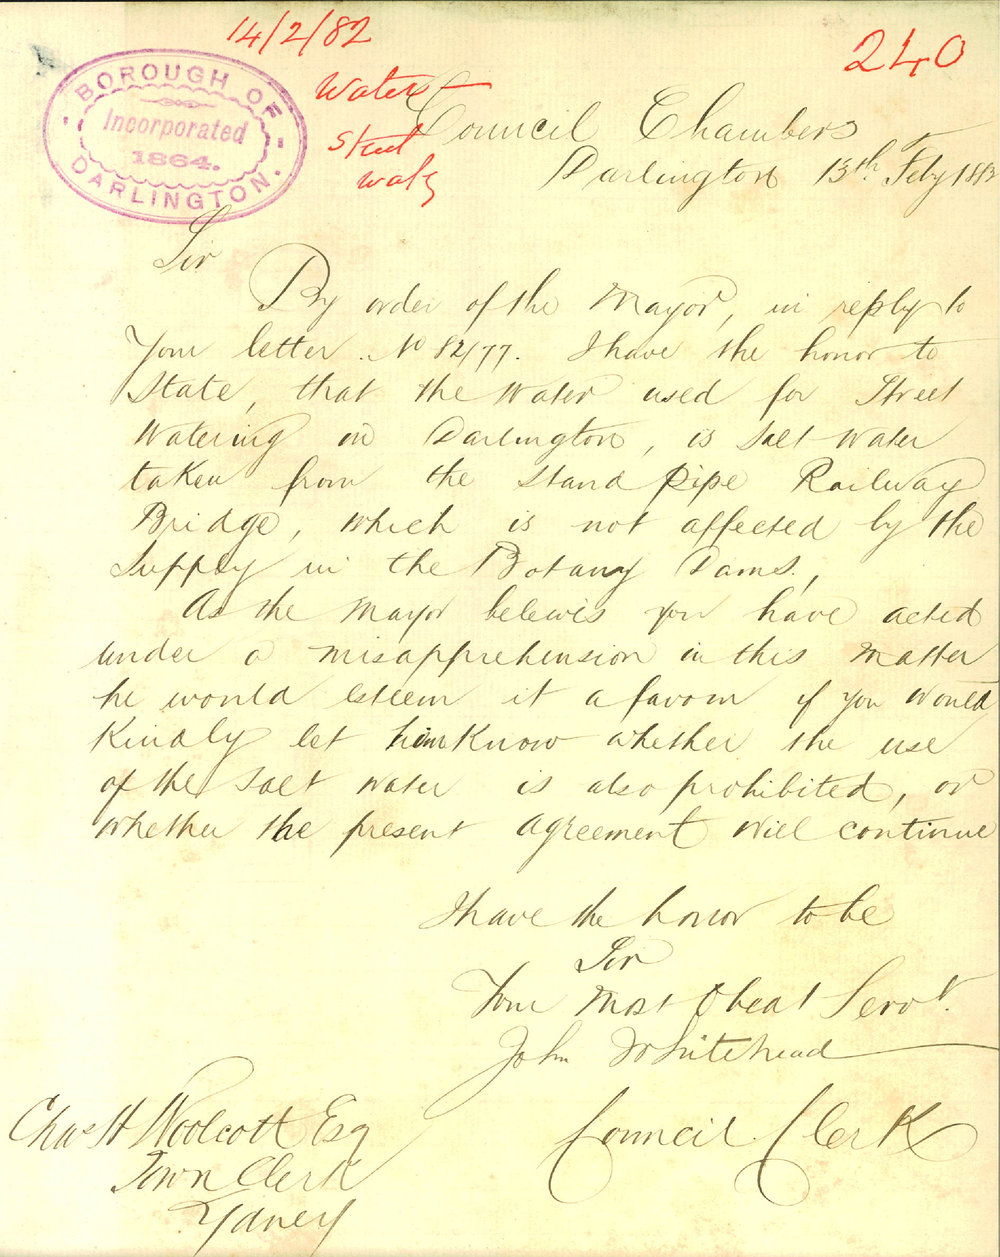 14/2/82
240
Water
Street
BOROUGH OF
Incorporated
1864.
DARLINGTON.
Council Chambers
Darlington 13th Feby
Sir
By order of the Mayor, in reply to
Your letter No 82/77. I have the honor to
State, that the Water used for Street
Watering in Darlington, is Salt Water
taken from the Stand pipe Railway
Bridge, which is not affected by the
Supply in the Botany Dams.,
As the Mayor beleives you have acted
under a misapprehension in this Matter
he would esteem it a favour if you would
Kindly let him Know whether the use
of the Salt Water is also prohibited, or
whether the present Agreement will continue
I have the honor to be
Sir
Your Most Obedt Servt.
John Whitehead
Council Clerk
Chas H Woolcott Esq
Town Clerk
Sydney